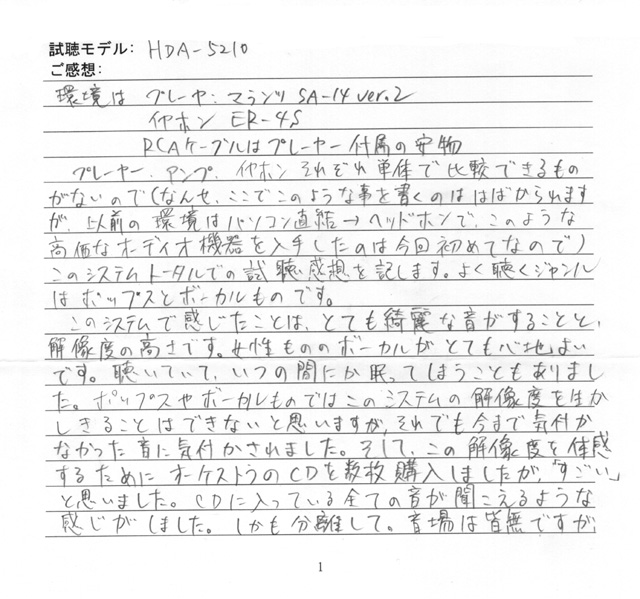 試聴モデル: HDA-5210
ご感想:
環境は プレーヤ:マランツ SA-14 ver.2
イヤホン ER-4S
RCAケーブルはプレーヤー付属の安物
プレーヤー、アンプ、イヤホンそれぞれ単体で比較できるもの
がないので(なんせ、ここでこのような事を書くのははばかられます
が、以前の環境はパソコン直結→ヘッドホンで、このような
高価なオーディオ機器を入手したのは今回初めてなので)
このシステムトータルでの試聴感想を記します。よく聴くジャンル
はポップスとボーカルものです。
このシステムで感じたことは、とても綺麗な音がすることと、
解像度の高さです。女性もののボーカルがとても心地よい
です。聴いていて、いつの間にか眠ってしまうこともありまし
た。ポップスやボーカルものではこのシステムの解像度を生か
しきることはできないと思いますが、それでも今まで気付か
なかった音に気付かされました。そして、この解像度を体感
するためにオーケストラのCDを数枚購入しましたが、「すごい」
と思いました。CDに入っている全ての音が聞こえるような
感じがしました。しかも分離して。音場は皆無ですが、
1